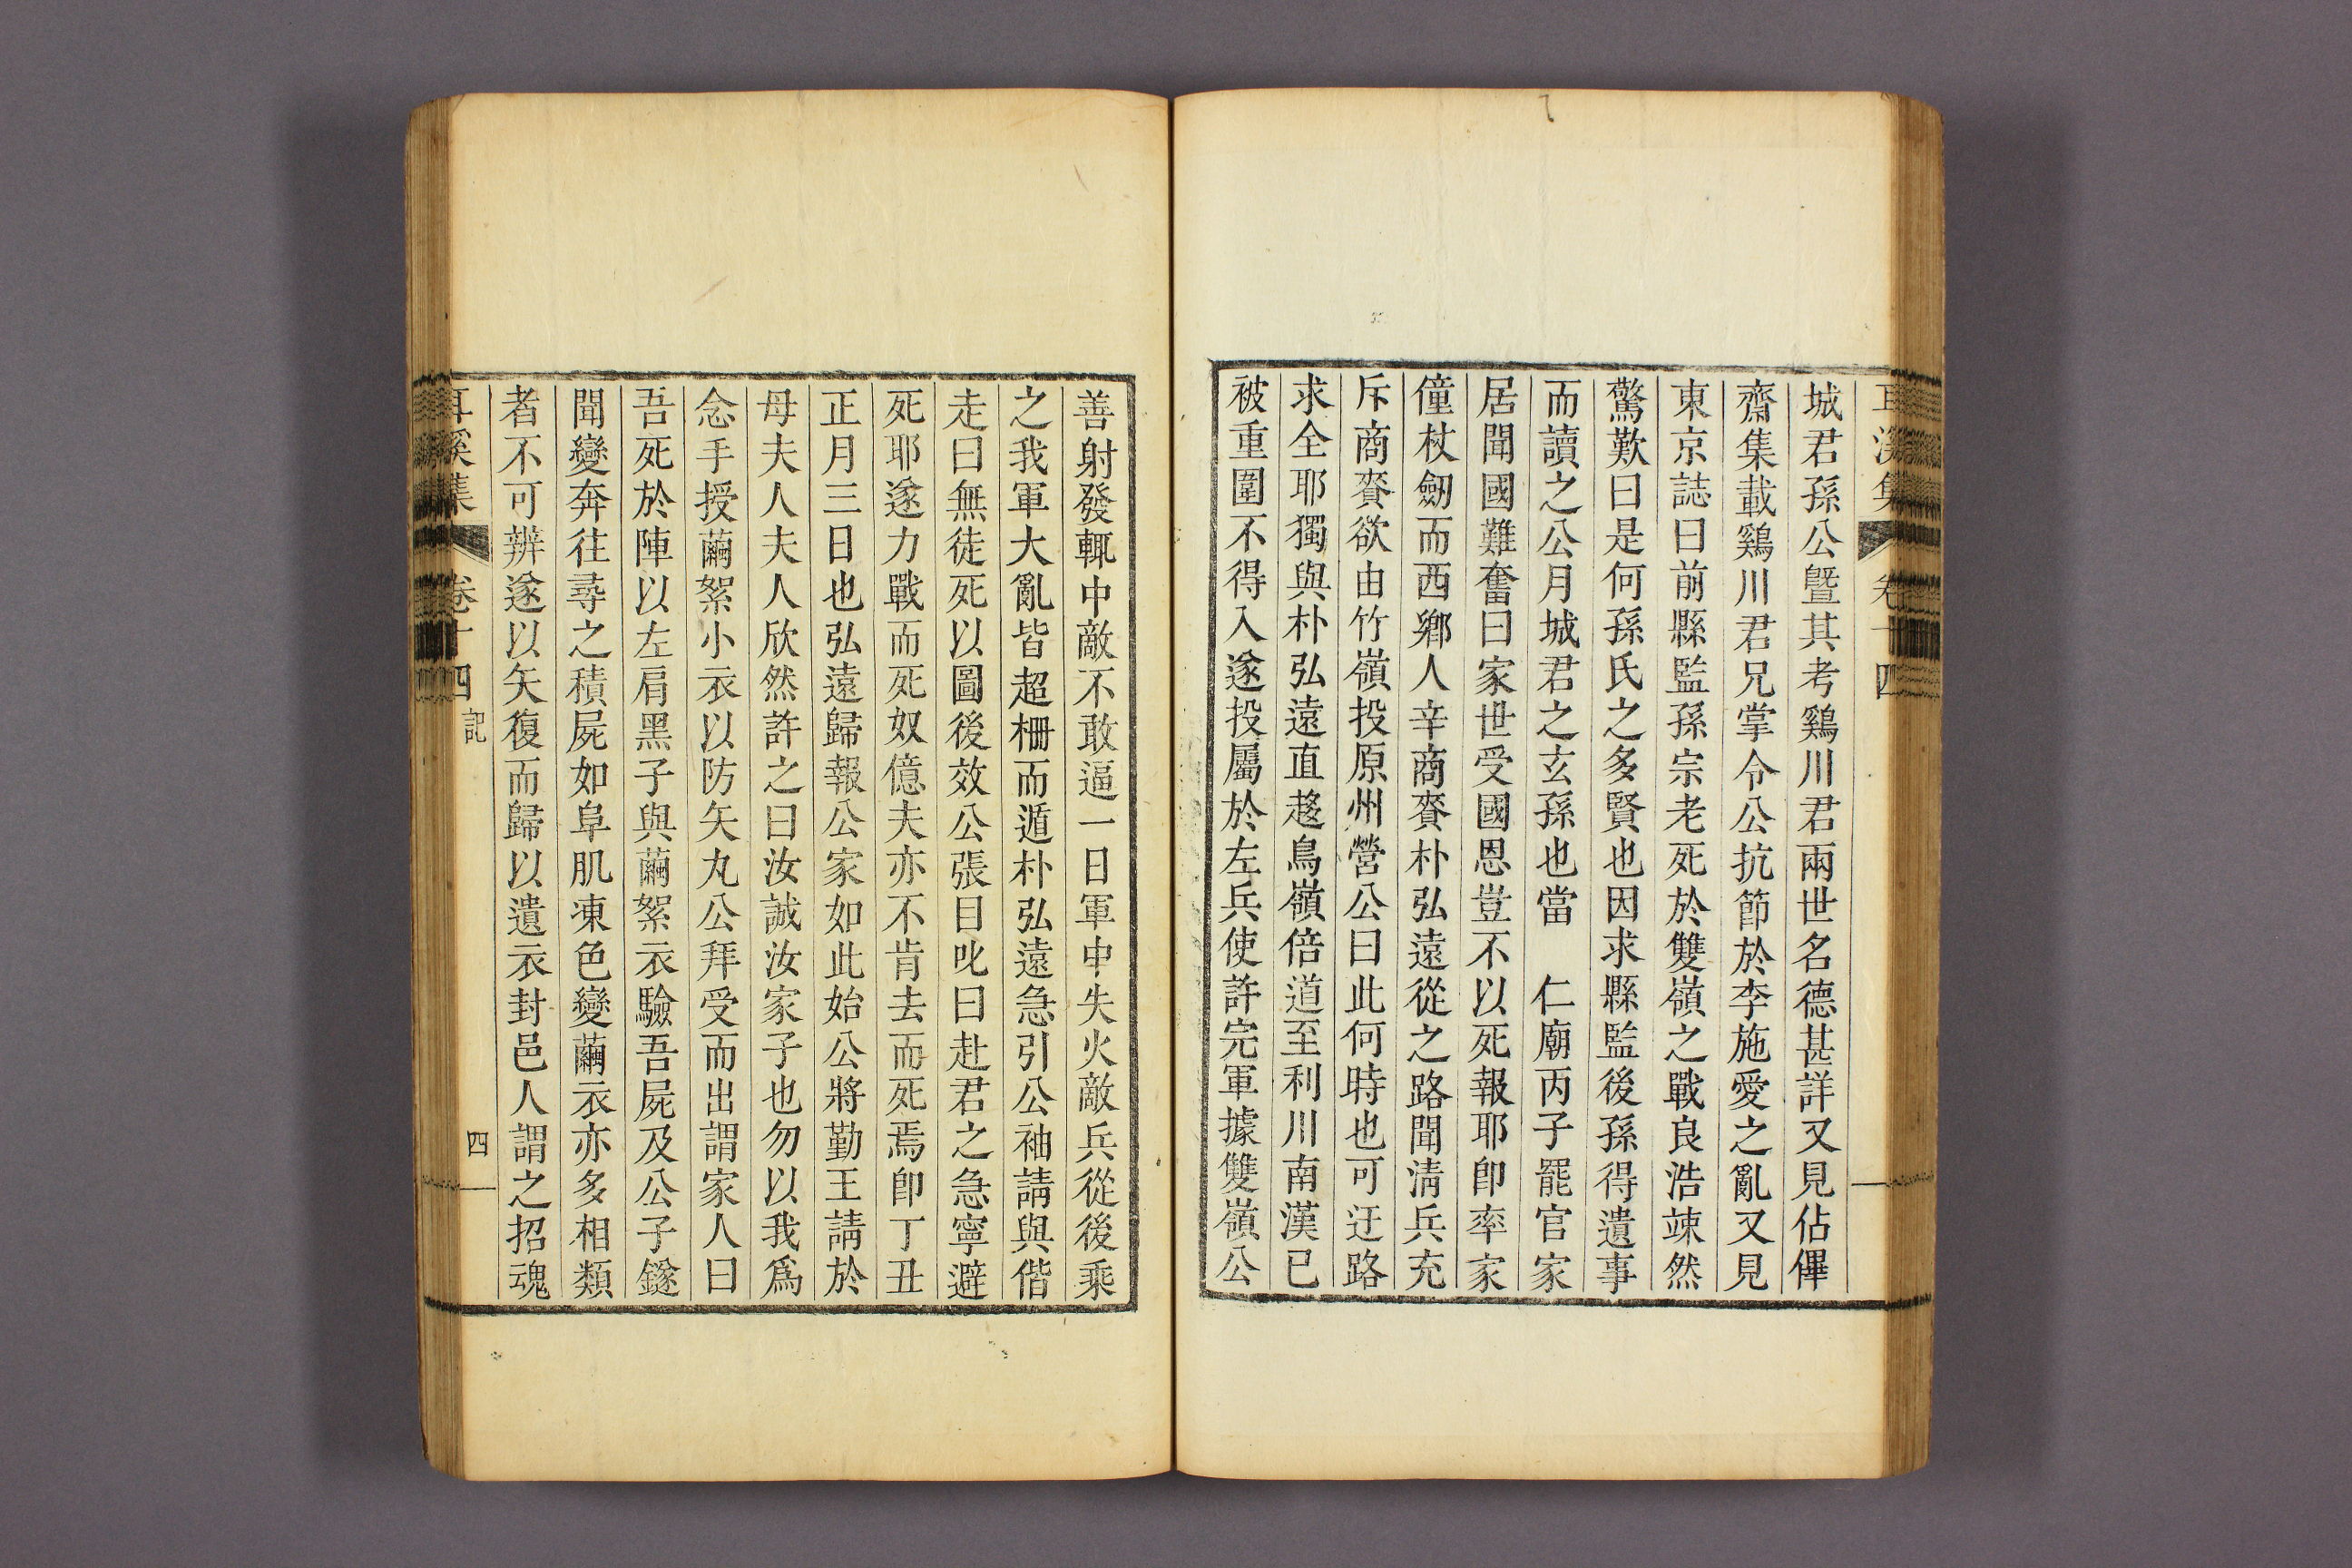 耳溪集 卷十四
城君孫公曁其考鷄川君兩世名德甚詳又見佔僤
齋集載鷄川君兄掌令公抗節於李施愛之亂又見
東京誌曰前縣監孫宗老死於雙嶺之戰良浩竦然
驚歎曰是何孫氏之多賢也因求縣監後孫得遺事
而讀之公月城君之玄孫也當 仁廟丙子罷官家
居聞國難奮曰家世受國恩豈不以死報耶卽率家
僮杖劒而西鄕人辛商賚朴弘遠從之路聞淸兵充
斥商賚欲由竹嶺投原州營公曰此何時也可迂路
求全耶獨與朴弘遠直趍鳥嶺倍道至利川南漢已
被重圍不得入遂投屬於左兵使許完軍據雙嶺公
善射發輒中敵不敢逼一日軍中失火敵兵從後乘
之我軍大亂皆超柵而遁朴弘遠急引公袖請與偕
走曰無徒死以圖後效公張目叱曰赴君之急寧避
死耶遂力戰而死奴億夫亦不肯去而死焉卽丁丑
正月三日也弘遠歸報公家如此始公將勤王請於
母夫人夫人欣然許之曰汝誠汝家子也勿以我爲
念手授繭絮小衣以防矢丸公拜受而出謂家人曰
吾死於陣以左肩黑子與繭絮衣驗吾屍及公子鐩
聞變奔往尋之積屍如阜肌凍色變繭衣亦多相類
者不可辨遂以矢復而歸以遺衣封邑人謂之招魂
耳溪集 卷十四 記 四